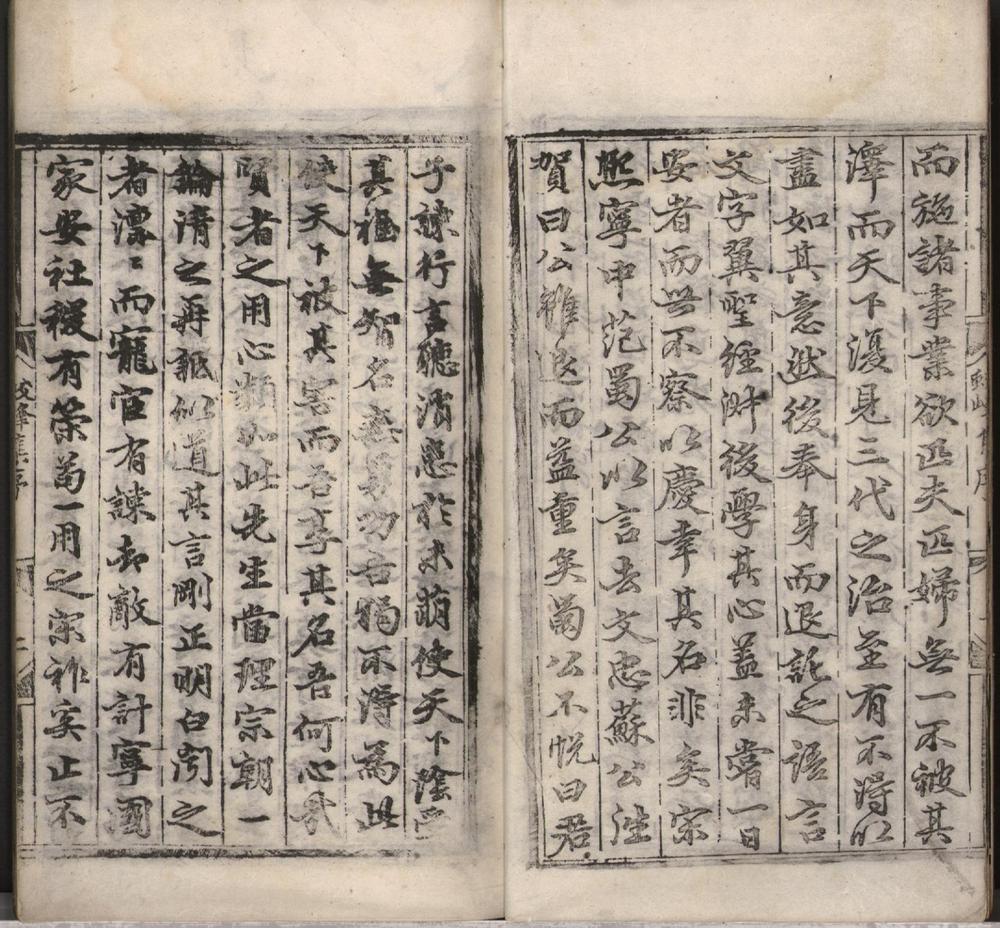 而施諸事業欲匹夫匹婦無一不被其
澤而天下復見三代之治至有不得以
盡如其意然後奉身而退託之語言
文字翼聖經淑後學其心蓋未嘗一日
安者而世不察以慶幸其名非矣宋
熙寧中范蜀公以言去文忠蘇公往
賀曰公雖退而益重矣蜀公不悅曰君
子諫行言聽消患於未萌使天下陰受
其福無智名無勇功吾獨不得爲此
使天下被其害而吾享其名吾何心哉
賢者之用心類如此先生當理宗朝一
論濟之再詆似道其言剛正明白聞之
者凛〻而寵官有諫却敵有計寧國
家安社稷有策苟一用之宋祚奚止不
蛟峰集序
二